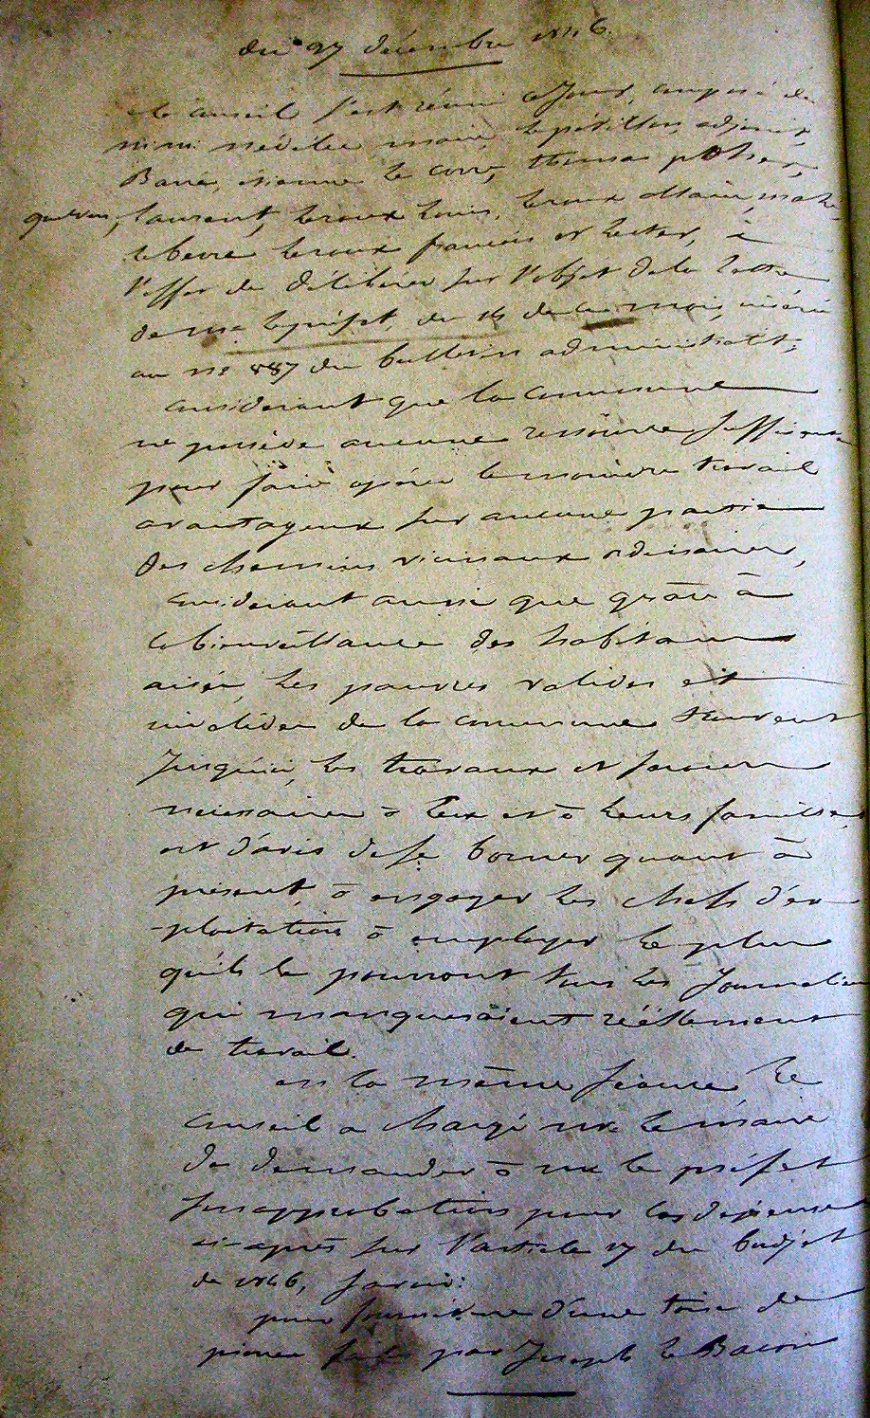 du 27 décembre 1846.
le conseil s'est réuni ce jour, composé de
mm. nédelec maire, le pétillon, adjoint,
Barré, étienne le corre, thomas
laurent, leroux louis, leroux allain,
leroux françois et lester, à
l'effet de délibérer sur l'objet de la lettre
de mr le préfet, du 14 de ce mois, inséré
au no 887 du bulletin administratif;
considerant que la commune
ne possède aucune ressource suffisante
pour faire opérer le moindre travail
avantageux sur aucune partie
des chemins vicinaux ordinaires,
considerant aussi que grâce à
la bienveillance des habitans
aisés, les pauvres valides et
invalides de la commune trouvent
jusqu'ici, les travaux et secours
nécessaires à eux et à leurs familles,
est d'avis de se borner quant à
présent, à engager les chefs d'ex-
-ploitation à employer le plus
qu'ils le pourront tous les journaliers
qui manqueraient réellement
de travail.
en la même séance, le
conseil a chargé mr le maire
de demander à mr le préfet
son approbation pour les dépenses
ci-après sur l'article 17 du budjet
de 1846, savoir:
pour fourniture d'une toise de
pierre faite par Joseph le Bacon